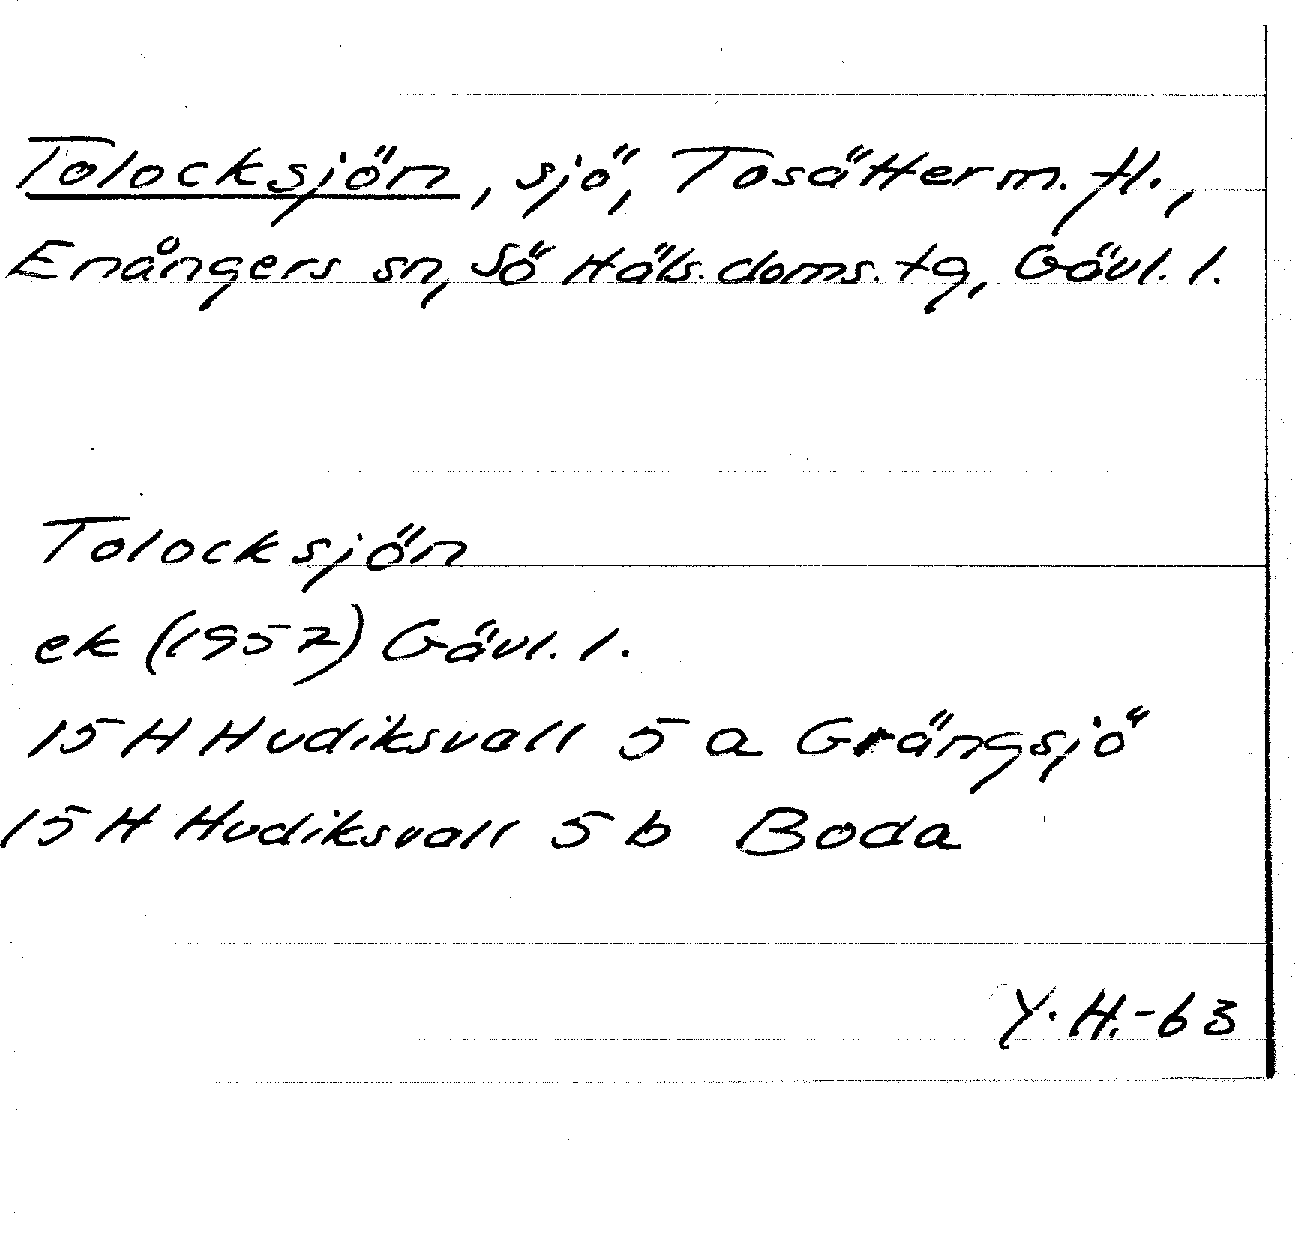 Tolocksjön, sjö, Tosätter m. fl.,
Enångers sn, Sö Häls. doms. tg, Gävl. l.
Tolocksjön
ek (1957) Gävl. l.
15 H Hudiksvall 5 a Grängsjö
15 H Hudiksvall 5 b Boda
Y. H. -63